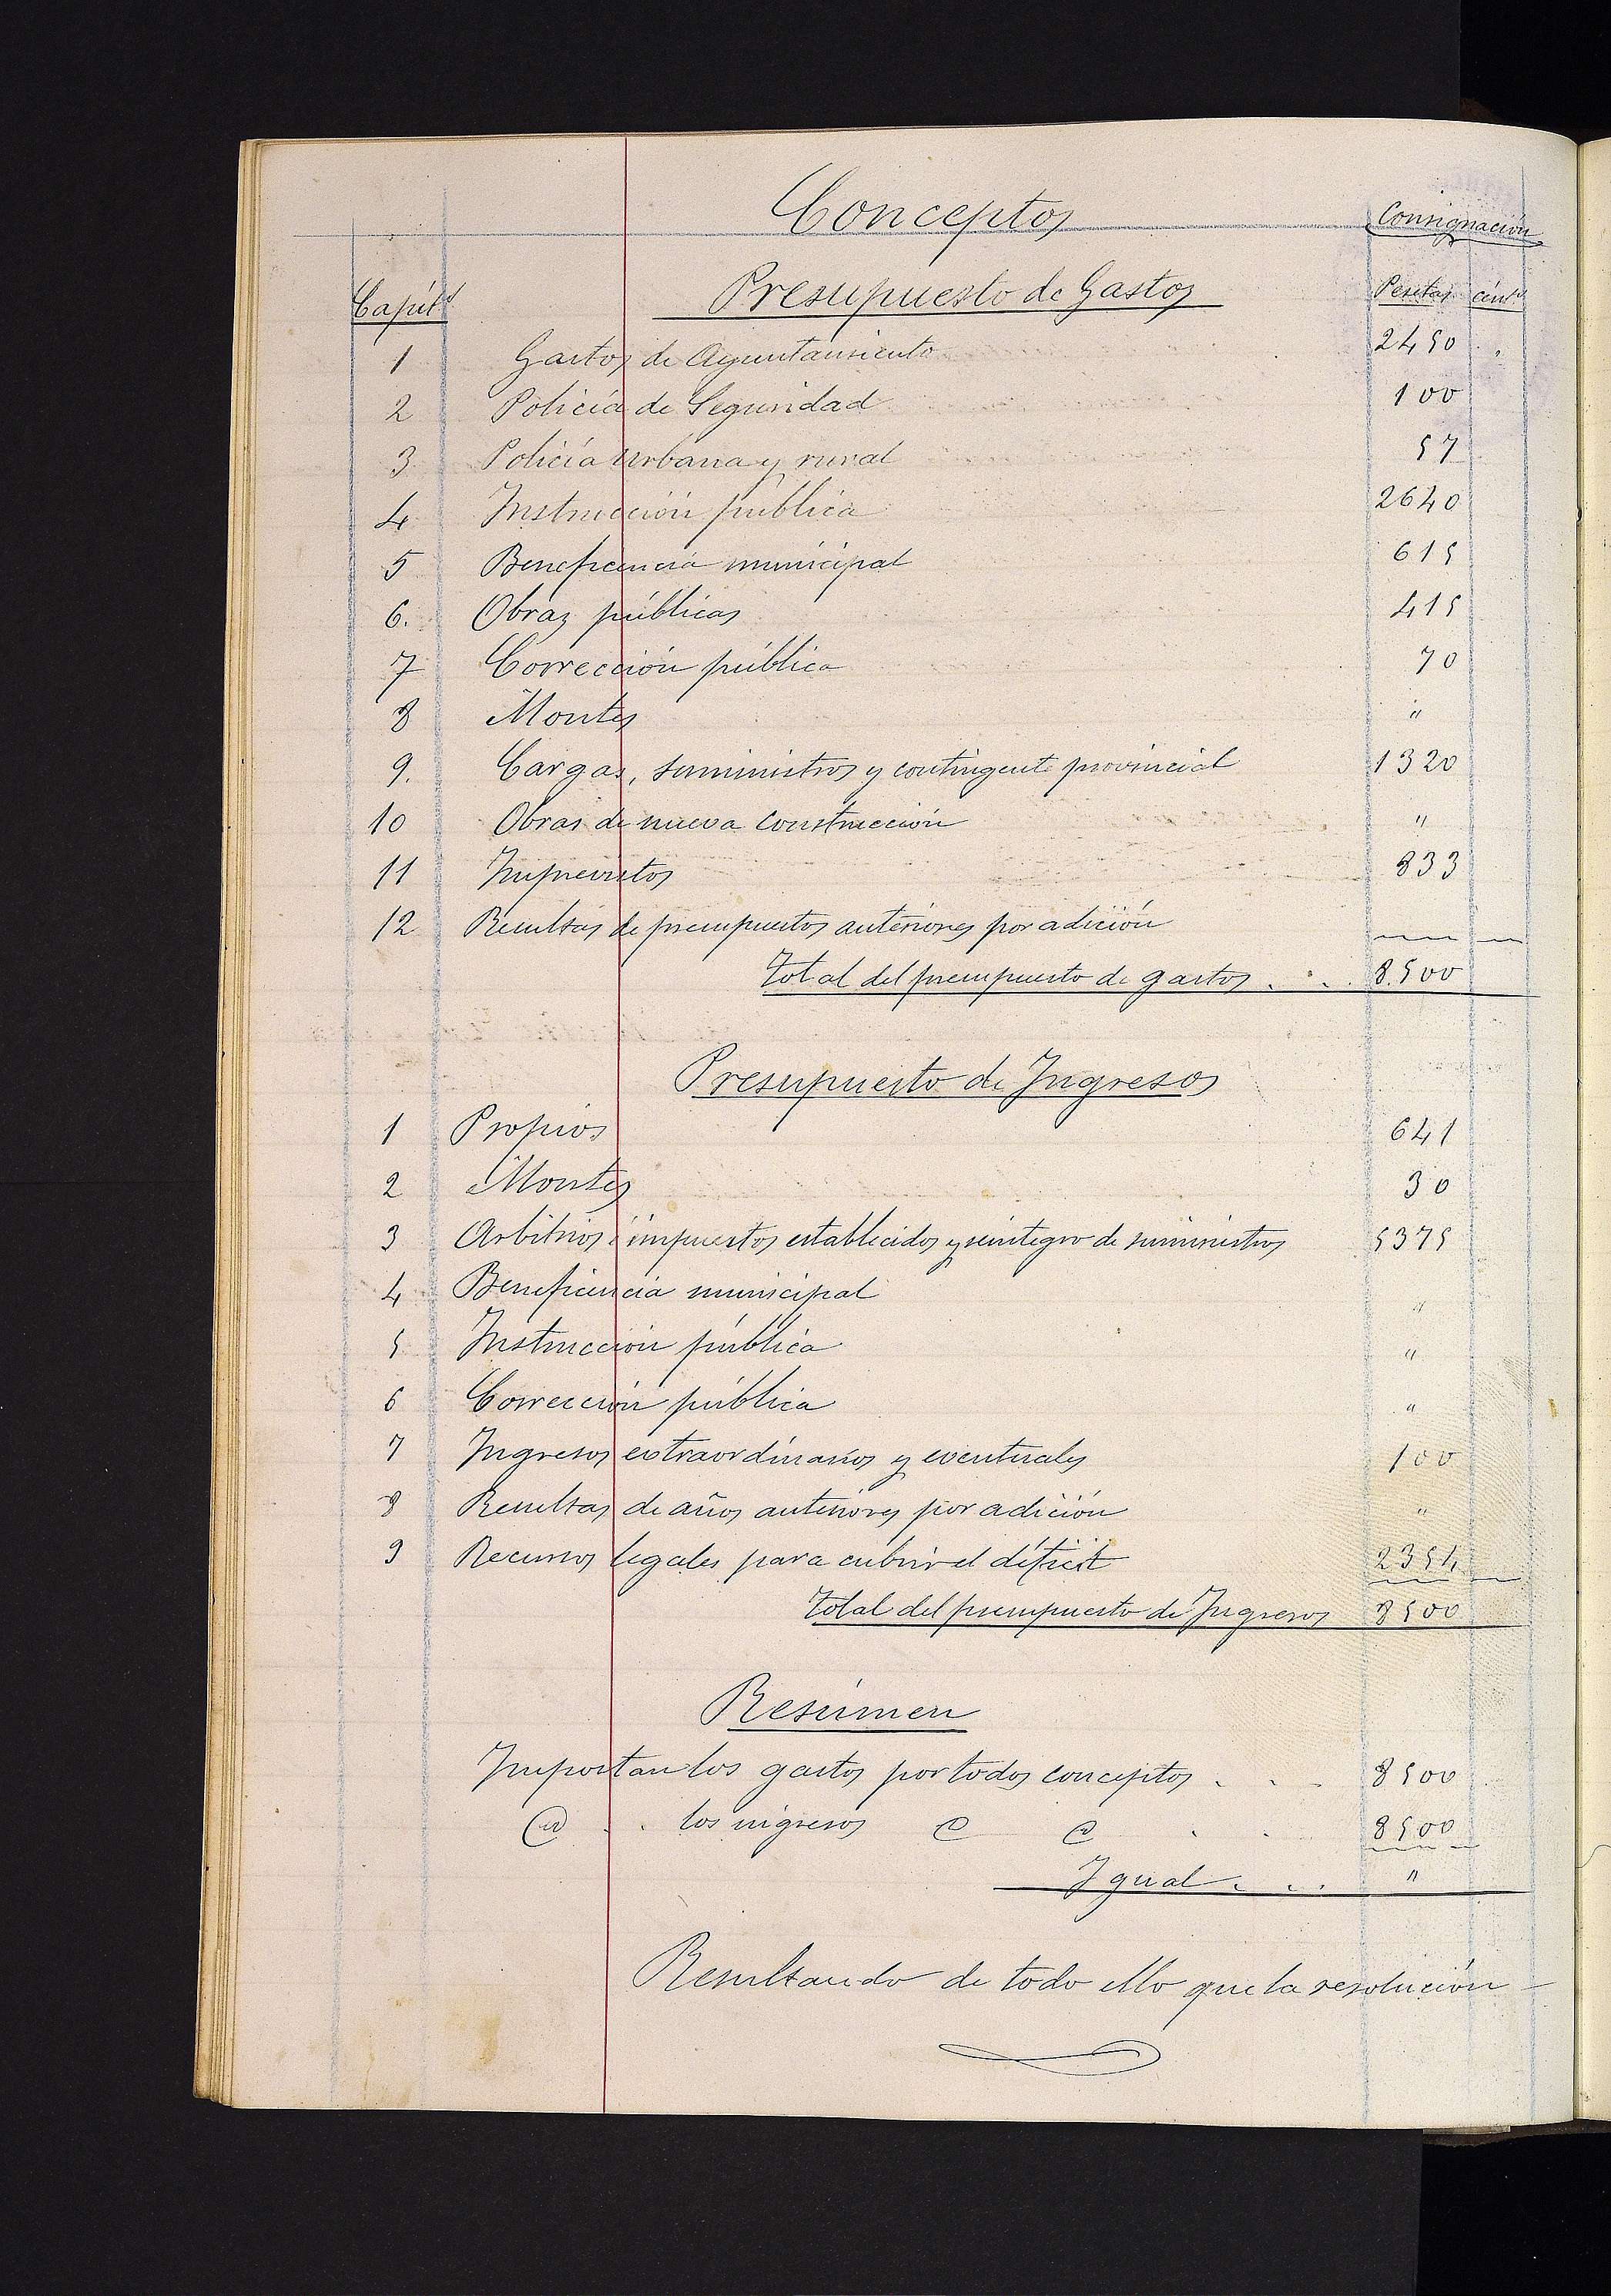 Conceptos Consignación
Capíts Presupuesto de Gastos Pesetas cénts
1 Gastos de Ayuntamiento 2450 "
2 Policía de Seguridad 100
3 Policía Urbana y rural 57
4 Instrucción pública 2640
5 Beneficencia municipal 615
6. Obras públicas 415
7 Corrección pública 70
8 Montes "
9. Cargas, suministros y contingente provincial 1320
10 Obras de nueva construcción "
11 Imprevistos 833
12 Resultas de presupuestos anteriores por adición
Total del presupuesto de gastos . . . 8.500
Presupuesto de Ingresos
1 Propios 641
2 Montes 30
3 Arbitrios é impuestos establecidos y reintegro de suministros 5375
4 Beneficencia municipal "
5 Instrucción pública "
6 Corrección pública "
7 Ingresos extraordinarios y eventuales 100
8 Resultas de años anteriores por adición "
9 Recursos legales para cubrir el déficit 2354
Total del presupuesto de Ingresos 8500
Resúmen
Importan los gastos por todos conceptos . . . 8500
los ingresos 8500
Igual . . . "
Resultando de todo ello que la resolución